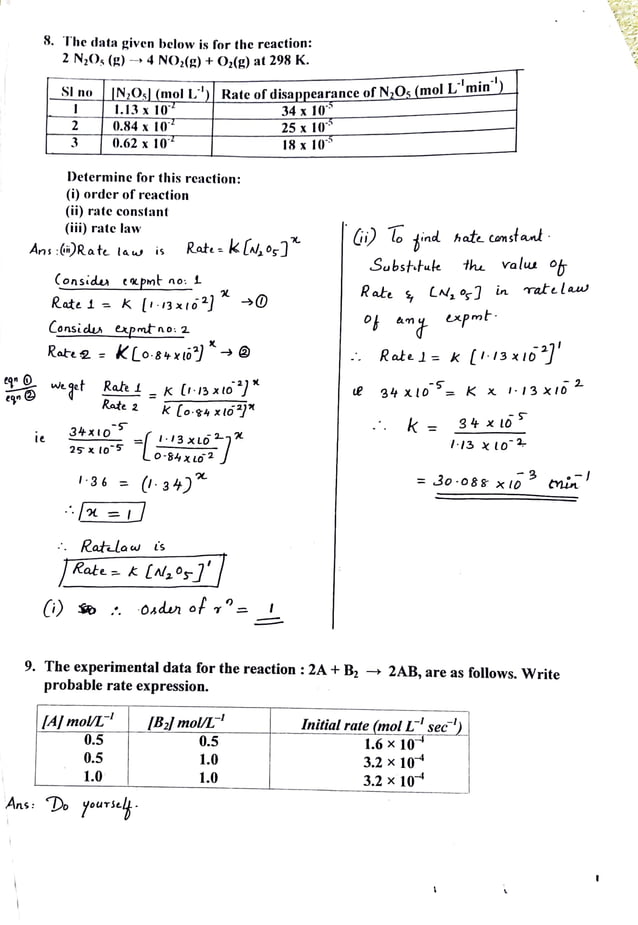 8. The data given below is for the reaction:
2 N₂O₅ (g) → 4 NO₂(g) + O₂(g) at 298 K.
Sl no [N₂O₅] (mol L⁻¹) Rate of disappearance of N₂O₅ (mol L⁻¹min⁻¹)
1 1.13 x 10⁻² 34 x 10⁻⁵
2 0.84 x 10⁻² 25 x 10⁻⁵
3 0.62 x 10⁻² 18 x 10⁻⁵
Determine for this reaction:
(i) order of reaction
(ii) rate constant
(iii) rate law
Ans :(iii) Rate law is Rate = K[N₂O₅]ˣ
Consider expmt no: 1
Rate 1 = K [1.13x10⁻²]ˣ →①
Consider expmt no: 2
Rate 2 = K[0.84x10⁻²]ˣ → ②
eqn ① / eqn ② we get Rate 1 / Rate 2 = K [1.13 x10⁻²]ˣ / K [0.84 x10⁻²]ˣ
ie 34x10⁻⁵ / 25x10⁻⁵ = [1.13 x10⁻² / 0.84 x10⁻²]ˣ
1.36 = (1.34)ˣ
∴ x = 1
∴ Ratelaw is
Rate = K [N₂O₅]¹
(i) ∴ Order of rⁿ = 1
(ii) To find rate constant.
Substitute the value of
Rate & [N₂O₅] in ratelaw
of any expmt.
∴ Rate 1 = K [1.13x10⁻²]¹
ie 34 x10⁻⁵ = K x 1.13 x10⁻²
∴ K = 34 x 10⁻⁵ / 1.13 x 10⁻²
= 30.088 x 10⁻³ min⁻¹
9. The experimental data for the reaction : 2A + B₂ → 2AB, are as follows. Write
probable rate expression.
[A] mol/L⁻¹ [B₂] mol/L⁻¹ Initial rate (mol L⁻¹ sec⁻¹)
0.5 0.5 1.6 × 10⁻⁴
0.5 1.0 3.2 × 10⁻⁴
1.0 1.0 3.2 × 10⁻⁴
Ans: Do yourself.